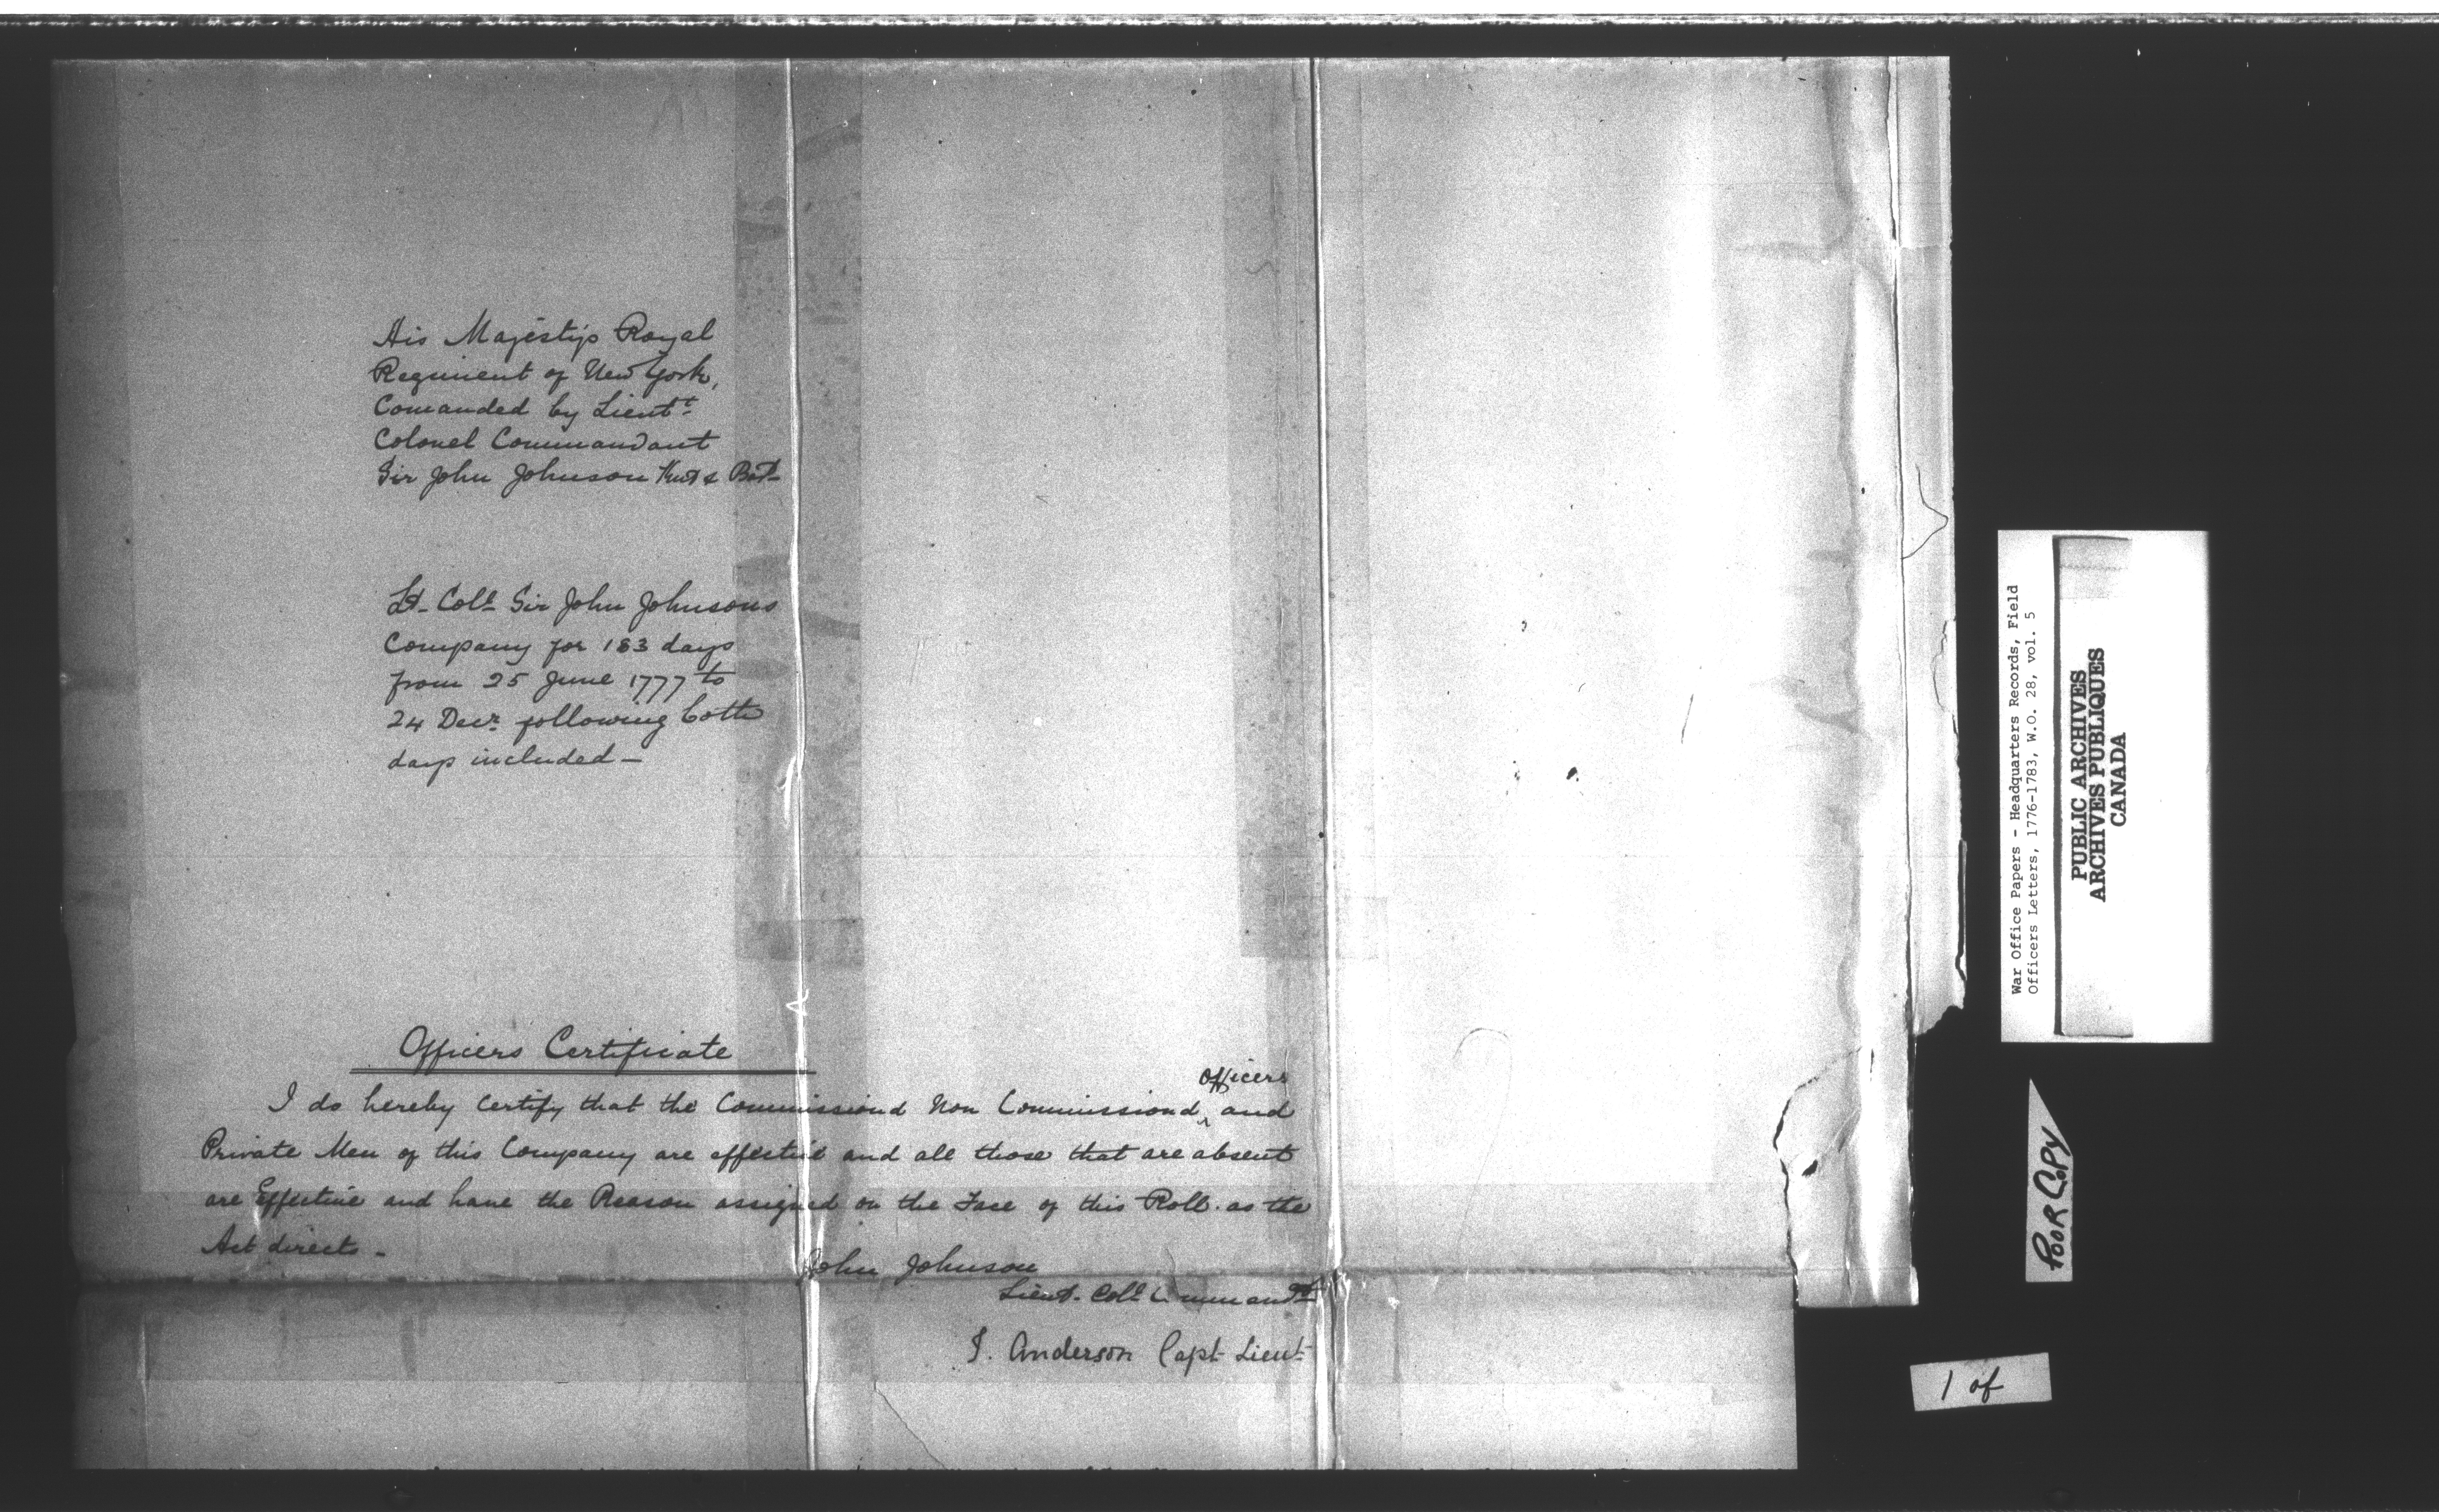 His Majestys Royal
Regiment of New York,
Comanded by Lieutt
Colonel Commandant
Sir John Johnson Knt & Bart
Lt. Coll Sir John Johnsons
Company for 183 days
from 25 June 1777 to
24 Decr following both
days included —
Officers Certificate
I do hereby certify that the Commissiond Non Commissiond Officers and
Private Men of this Company are effective and all those that are absent
are Effective and have the Reason assigned on the Face of this Roll. as the
Act directs -
John Johnson
Lieut. Coll Commandt
J. Anderson Capt Lieut
War Office Papers - Headquarters Records, Field
Officers Letters, 1776-1783, W.O. 28, vol. 5
PUBLIC ARCHIVES
ARCHIVES PUBLIQUES
CANADA
POOR COPY
1 of